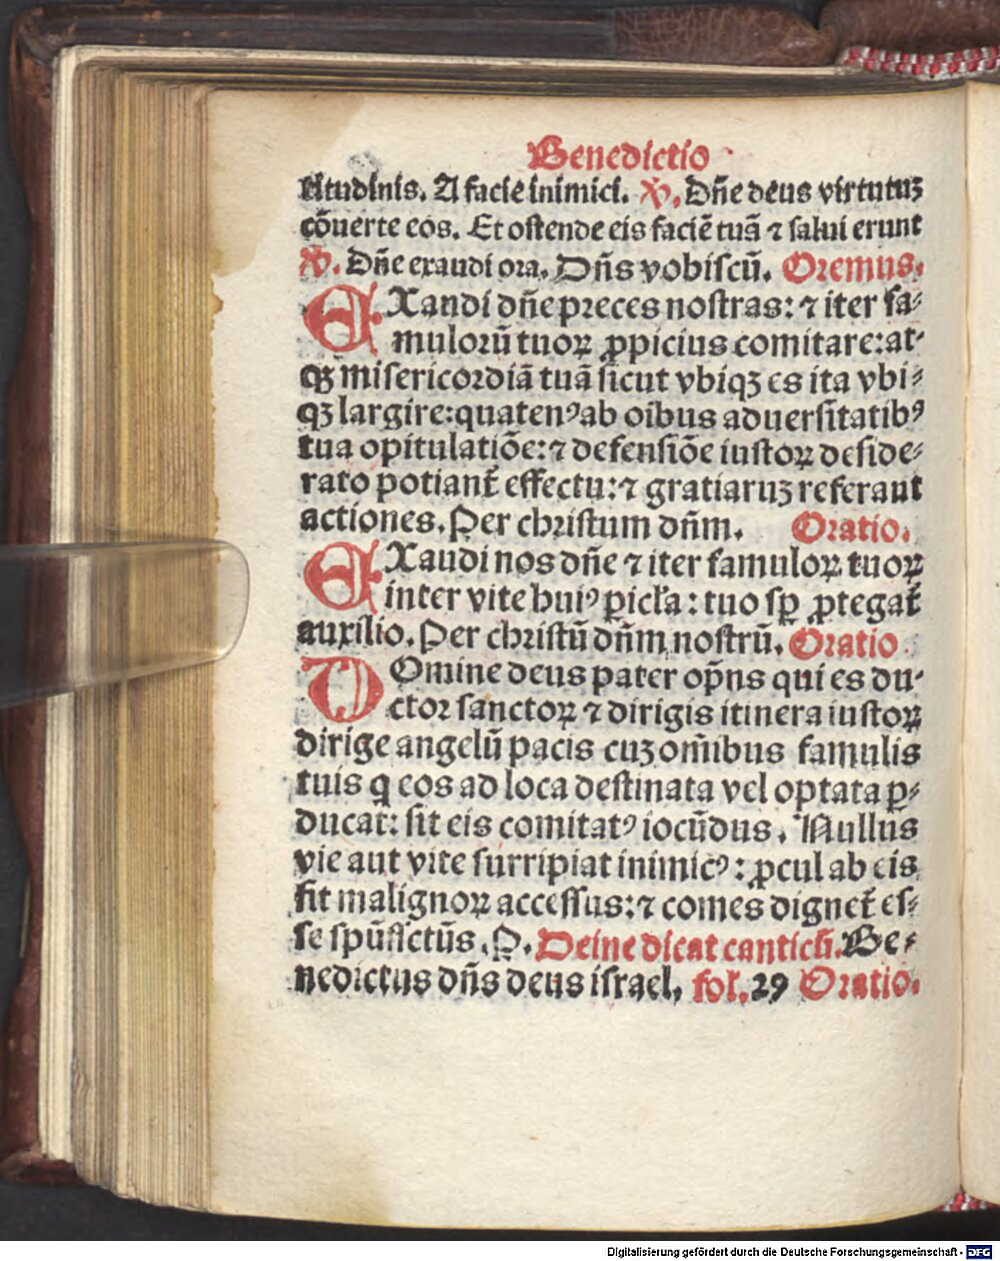 Benedictio
titudinis. A facie inimici. ℣. Dñe deus virtutuꝫ
cõuerte eos. Et ostende eis faciẽ tuã ⁊ salui erunt
℣. Dñe exaudi ora. Dñs vobiscũ. Oremus.
EXaudi dñe preces nostras: ⁊ iter fa⸗
mulorũ tuoꝝ ꝓpicius comitare: at⸗
qꝫ misericordiã tuã sicut vbiqꝫ es ita vbi⸗
qꝫ largire: quatenꝰ ab oĩbus aduersitatibꝰ
tua opitulatiõe: ⁊ defensiõe iustoꝝ deside⸗
rato potiant᷑ effectu: ⁊ gratiaruꝫ referant
actiones. Per christum dñm. Oratio.
EXaudi nos dñe ⁊ iter famuloꝝ tuoꝝ
inter vite huiꝰ ꝑicła: tuo sꝑ ꝓtegat᷑
auxilio. Per christũ dñm nostrũ. Oratio
DOmine deus pater op̃ns qui es du⸗
ctor sanctoꝝ ⁊ dirigis itinera iustoꝝ
dirige angelũ pacis cuꝫ om̃ibus famulis
tuis q eos ad loca destinata vel optata ꝑ⸗
ducat: sit eis comitatꝰ iocũdus. Nullus
vie aut vite surripiat inimicꝰ: ꝓcul ab eis
sit malignoꝝ accessus: ⁊ comes dignet᷑ es⸗
se spũssctũs. P. Deine dicat canticũ. Be⸗
nedictus dñs deus israel. fol. 29 Oratio.
Digitalisierung gefördert durch die Deutsche Forschungsgemeinschaft - DFG